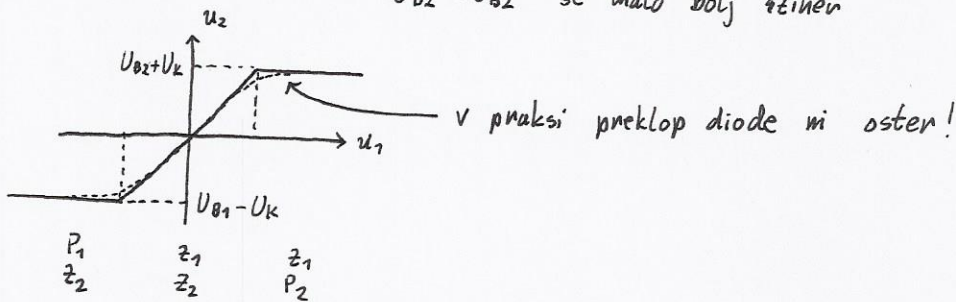 še malo bolj
u₂
U_B2+U_K
v praksi preklop diode ni oster!
u₁
U_B1-U_K
P₁ z₁ z₁
Z₂ Z₂ P₂